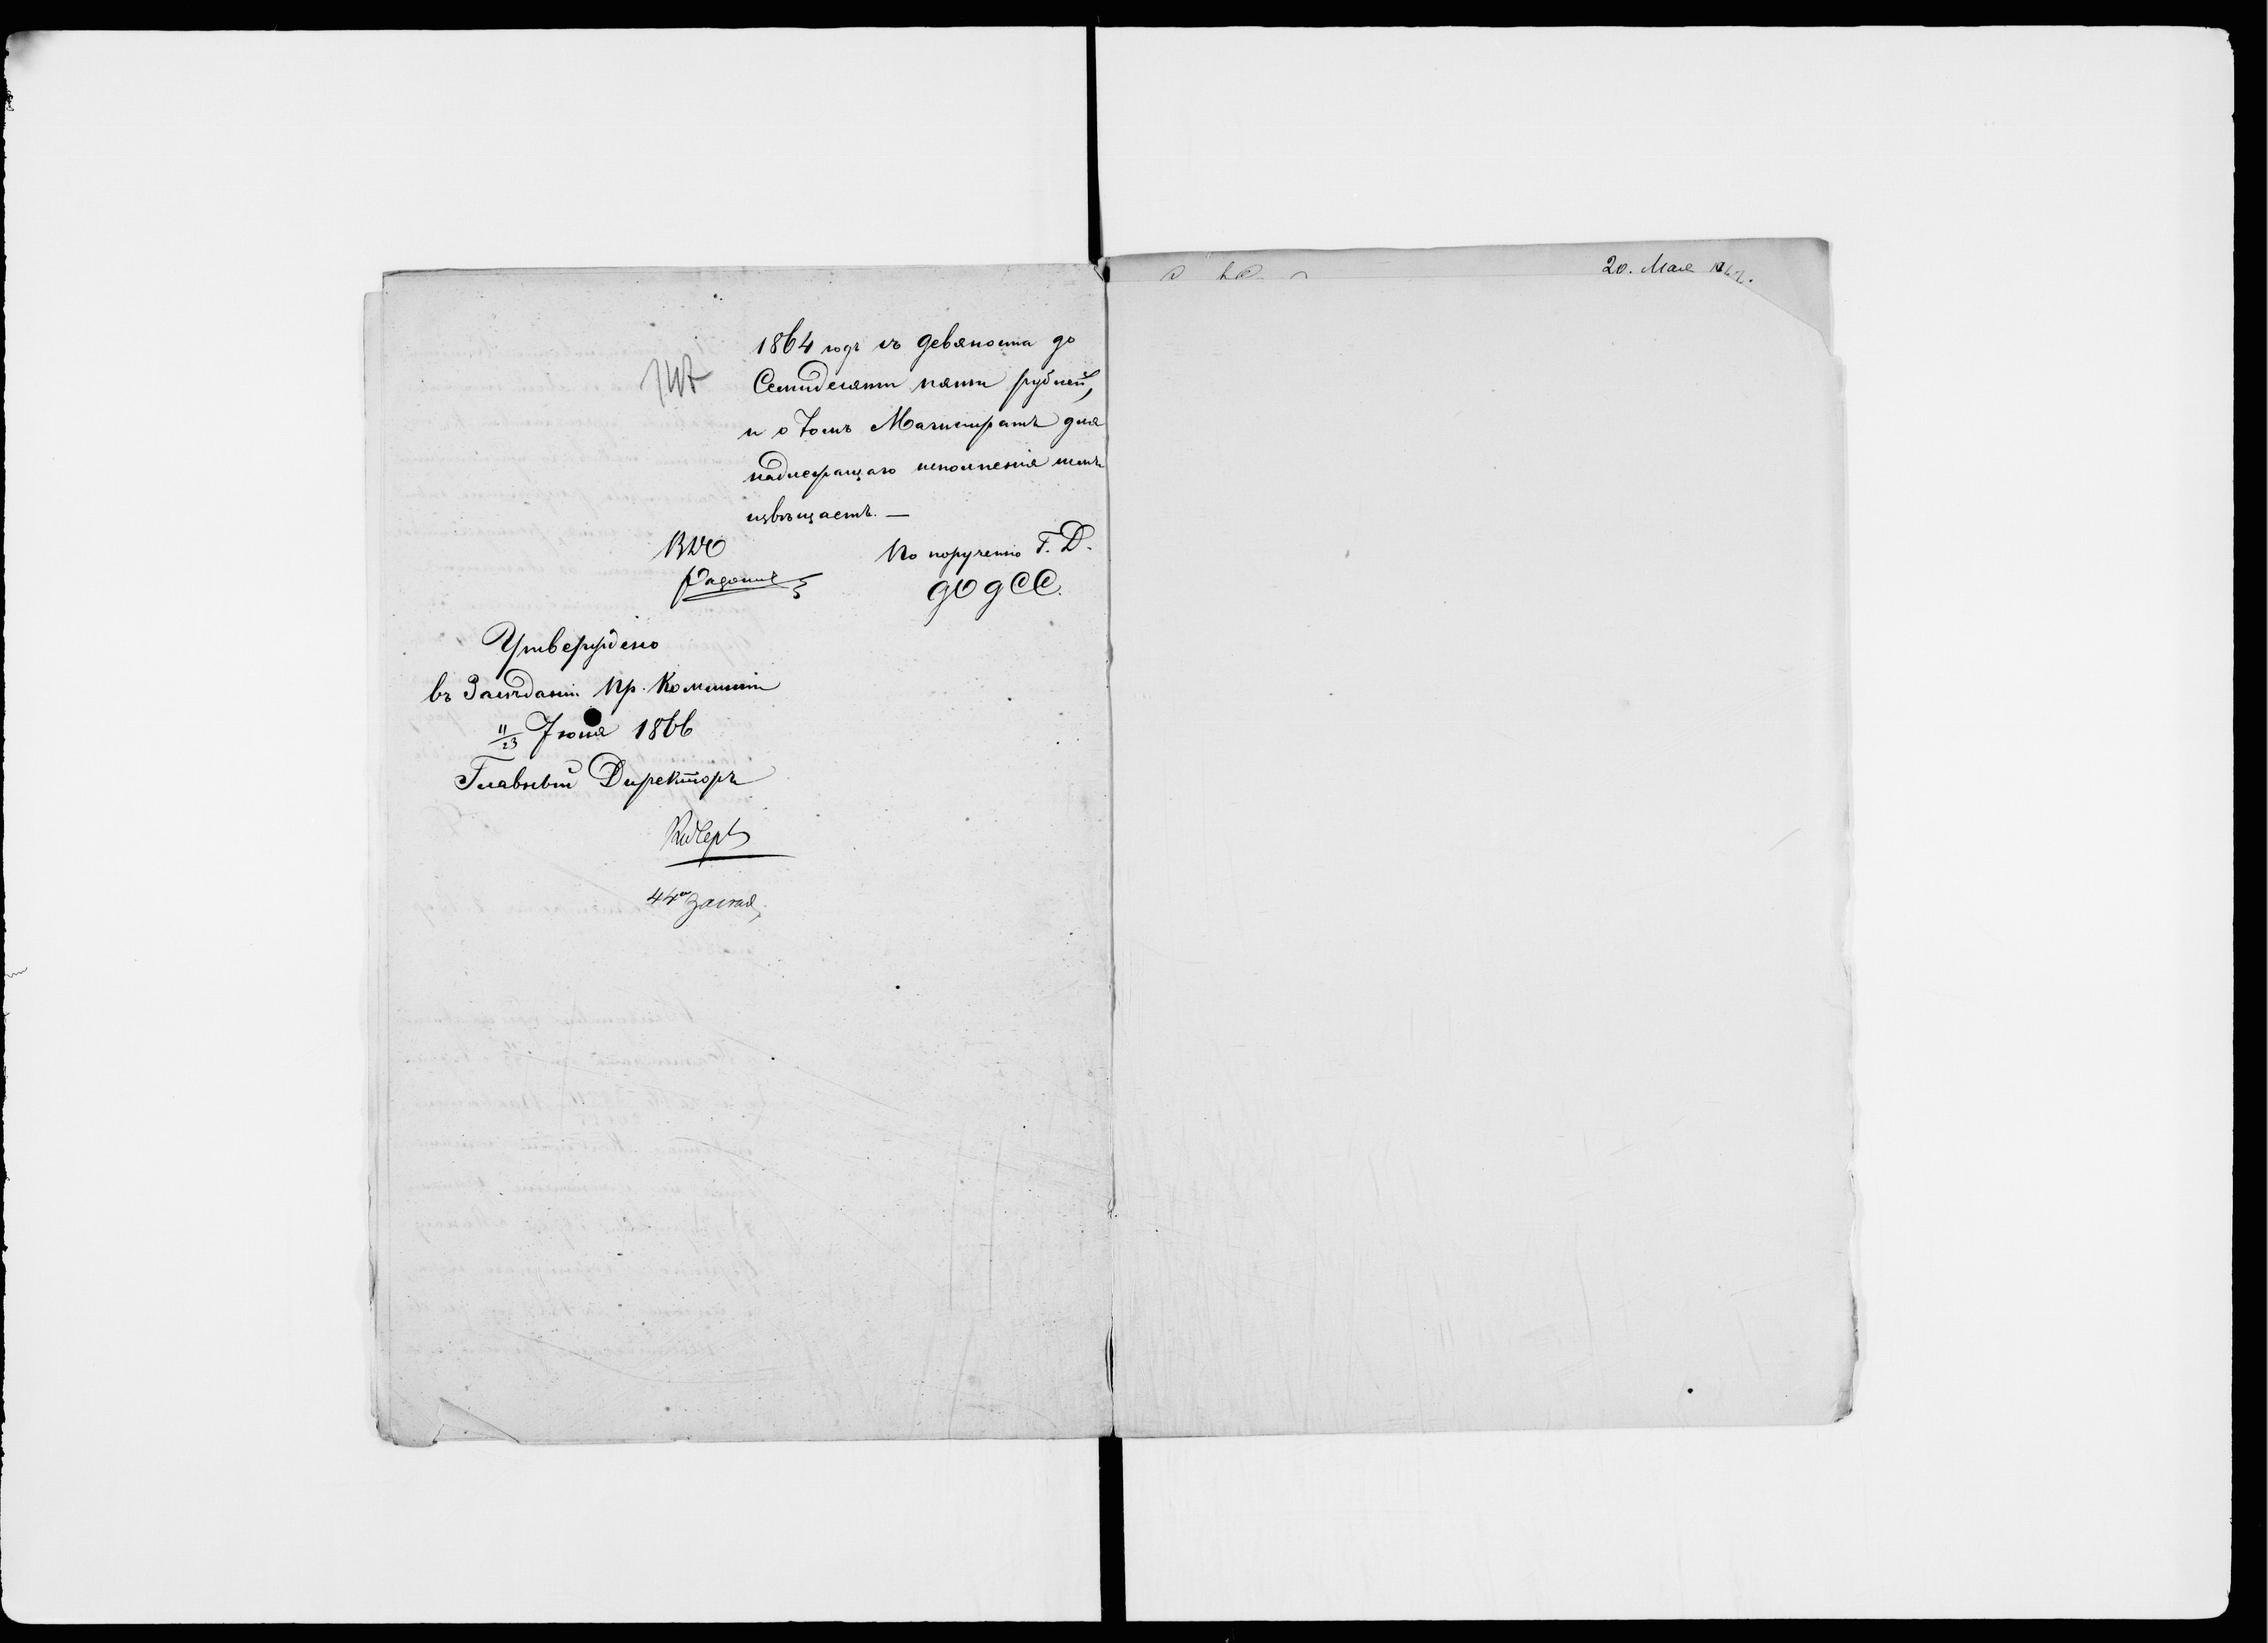 1864 годъ съ девяноста до
Семидесяти пяти рублей,
и о томъ Магистратъ для
надлежащаго исполненія симъ
извѣщаетъ. —
По порученію Г. Д.
Утверждено
въ Засѣданіи Пр. Коммисіи
11/23 Іюня 1866
Главный Директоръ
20. Мая